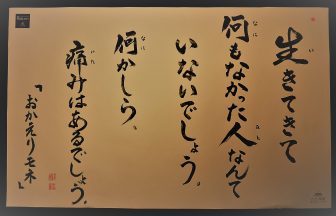 生きてきて
何もなかった人なんて
いないでしょう。
何かしら
痛みはあるでしょう。
「おかえりモネ」